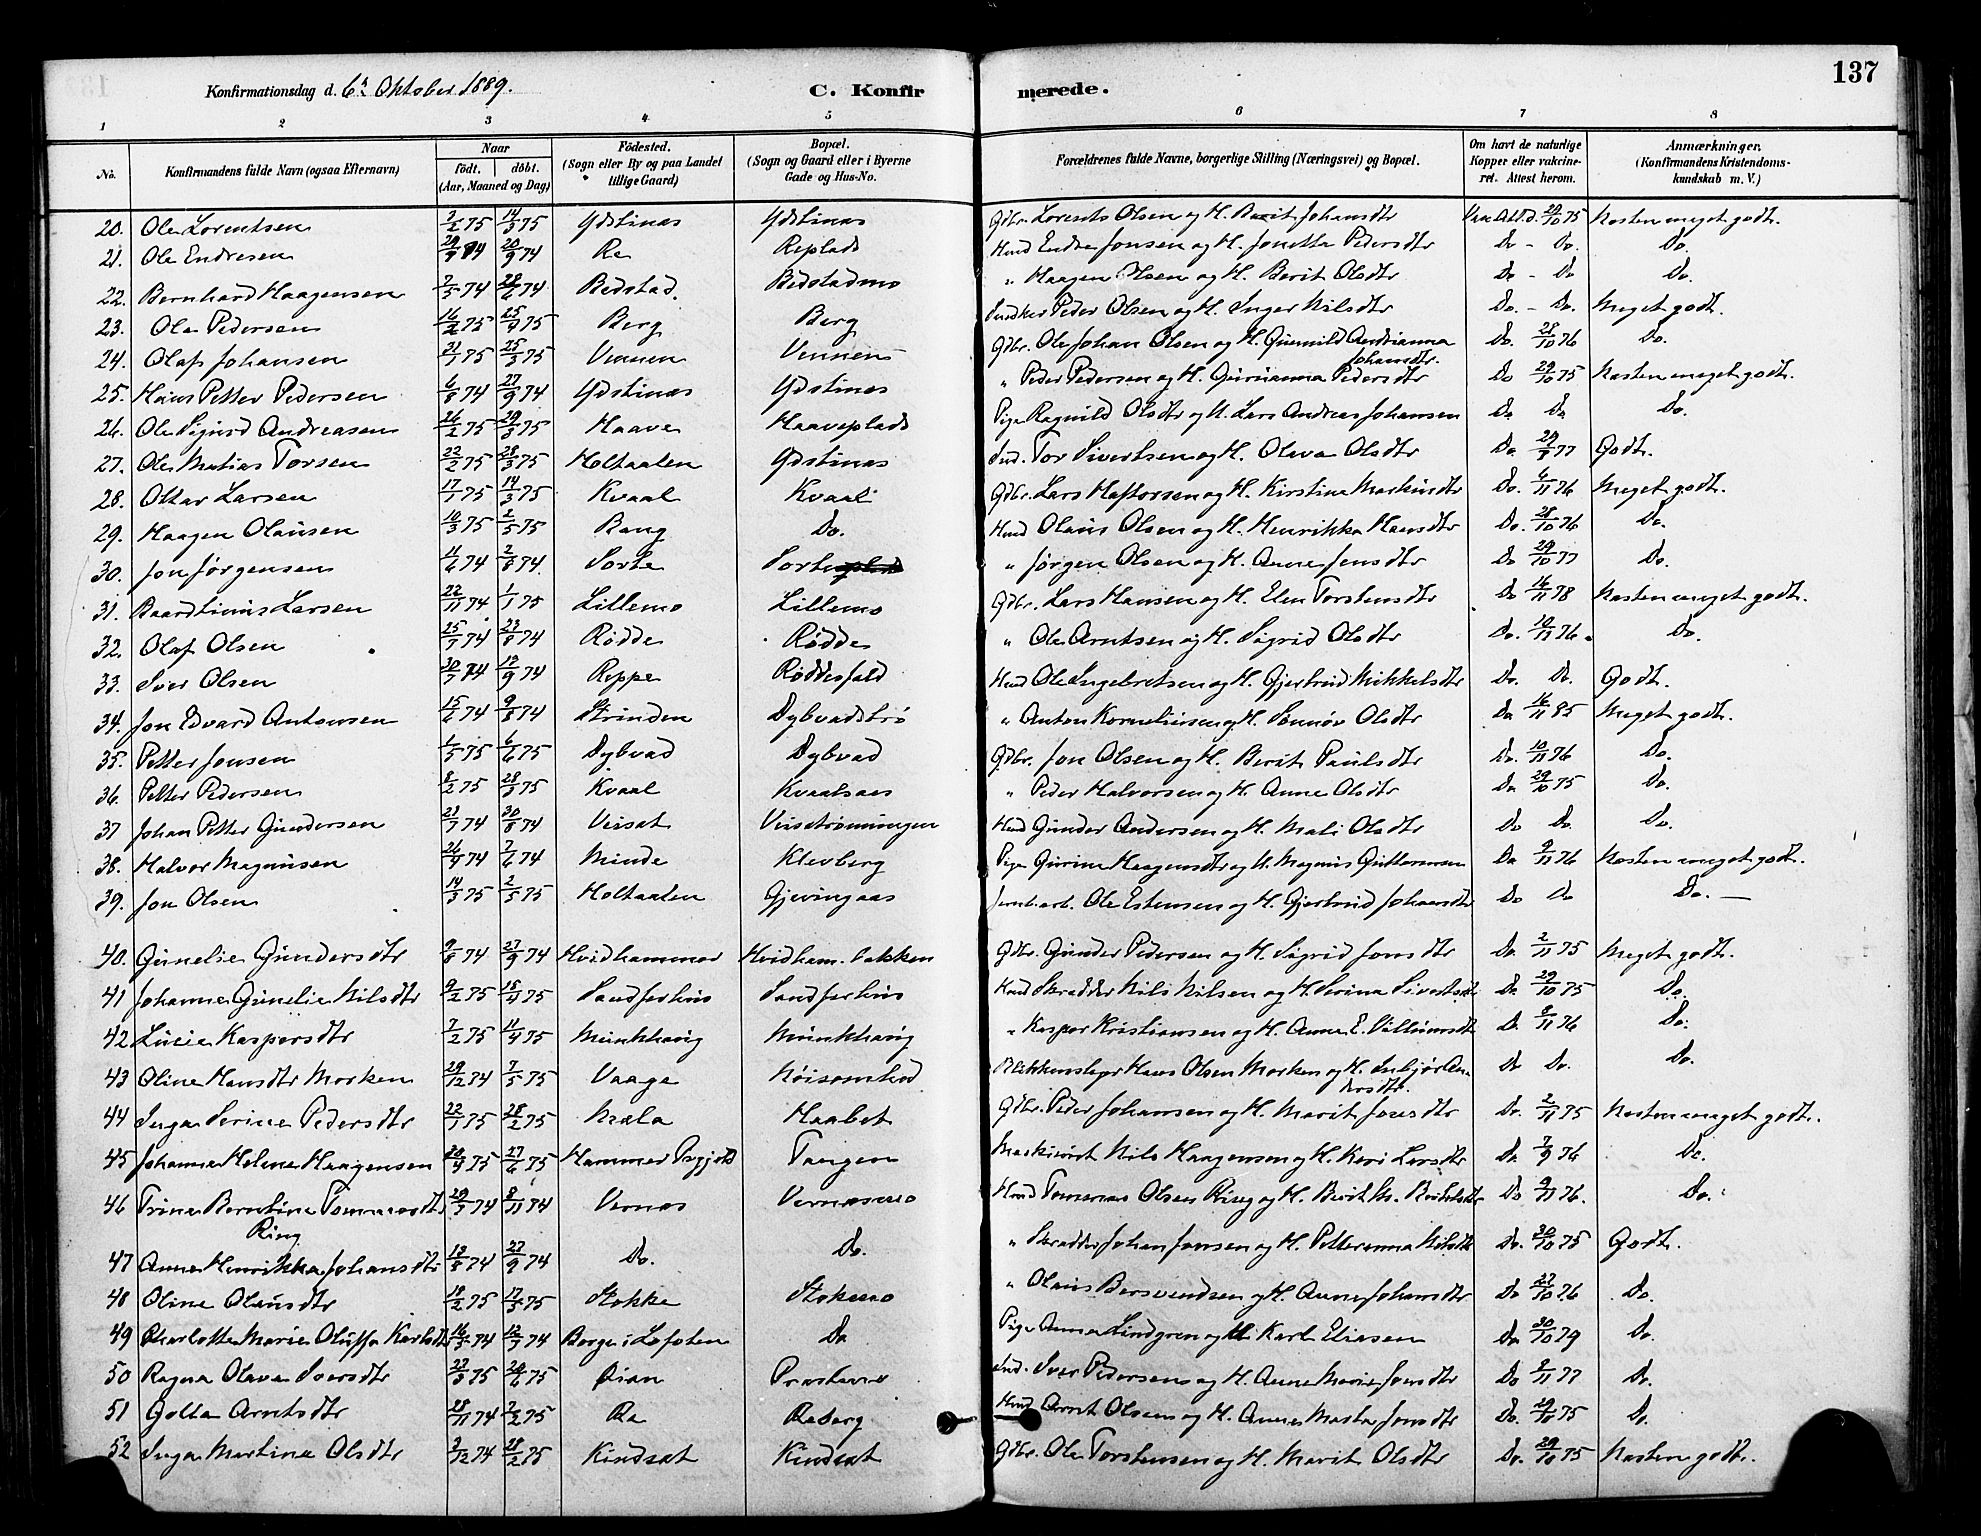 137
Konfirmationsdag d. 6te Oktober 1889. C. Konfirmerede.
1 2 3 4 5 6 7 8
No. Konfirmandens fulde Navn (ogsaa Efternavn) Naar födt. döbt. (Aar, Maaned og Dag) Födested. (Sogn eller By og paa Landet lillige Gaard) Bopæl. (Sogn og Gaard eller i Byerne Gade og Hus-No. Forældrenes fulde Navne, borgerlige Stilling (Næringsvei) og Bopæl. Om havt de naturlige Kopper eller vakcineret. Attest herom. Anmærkninger. (Konfirmandens Kristendomskundskab m. V.)
20. Ole Lorentsen 2/2 75 14/3 75 Ydstines Ydstines Gdbr. Lorents Olsen og H. Berit Johansdtr Vac. Att. d. 20/10 75 Næsten meget godt.
21. Ole Endresen 29/7 74 20/9 74 Re Replads Husmd Endre Jonsen og H. Jonetta Pedersdtr Do - Do. Do.
22. Bernhard Haagensen 2/5 74 28/6 74 Bedstad Bedstadmo " Haagen Olsen og H. Berit Olsdtr Do - Do Do.
23. Ole Pedersen 16/2 75 25/4 75 Berg Berg Peder Olsen og H. Inger Nilsdtr Do. - Do. Meget godt.
24. Olaf Johansen 31/1 75 25/3 75 Vennen Vennen Gdbr. Ole Johan Olsen og H. Gunnild Andrianna Johansdtr. Do. 28/10 76 Do.
25. Hans Petter Pedersen 6/8 74 27/9 74 Ydstines Ydstines " Peder Pedersen og H. Gurianna Pedersdtr Do 29/10 75 Næsten meget godt.
26. Ole Sigurd Andreasen 26/2 75 29/3 75 Haave Haaveplads Pige Ragnild Olsdtr og U. Lars Andreas Johansen Do Do Do.
27. Ole Matias Torsen 22/2 75 28/3 75 Holtaalen Ydstines Ind. Tor Sivertsen og H. Olava Olsdtr Do. 29/9 77 Godt.
28. Ottar Larsen 17/1 75 14/3 75 Kvaal Kvaal Gdbr. Lars Haftorsen og H. Kirstina Markusdtr Do. 6/11 76 Meget godt.
29. Haagen Olausen 10/3 75 2/5 75 Bang Do. Husmd Olaus Olsen og H. Henrikka Hansdtr Do. 28/10 76 Do.
30. Jon Jørgensen 11/6 74 2/8 74 Sorte Sorte " Jørgen Olsen og H. Anne Jonsdtr Do 29/10 77 Do.
31. Baardtinus Larsen 22/11 74 1/1 75 Lillemo Lillemo Gdbr. Lars Hansen og H. Elen Torstensdtr Do 16/11 78 Næsten meget godt.
32. Olaf Olsen 25/7 74 23/8 74 Rødde Rødde " Ole Arntsen og H. Sigrid Olsdtr Do. 10/11 76. Do.
33. Iver Olsen 30/7 74 13/9 74 Reppe Røddesfald Husmd Ole Ingebretsen og H. Gjertrud Mikkelsdtr Do. Do. Godt.
34. Jon Edvard Antonsen 15/6 74 9/8 74 Strinden Dybvadstrø " Anton Korneliusen og H. Sennøv Olsdtr Do 16/11 85 Meget godt.
35. Petter Jonsen 1/5 75 6/6 75 Dybvad Dybvad Gdbr. Jon Olsen og H. Berit Paulsdtr Do. 10/11 76 Do.
36. Petter Pedersen 8/2 75 28/3 75 Kvaal Kvaalsaas " Peder Halvorsen og H. Anne Olsdtr Do 29/10 75 Do.
37 Johan Petter Gundersen 21/7 74 30/8 74 Veisat Husmd Gunder Andersen og H. Mali Olsdtr Do Do. Do.
38. Halvor Magnusen 26/4 74 7/6 74 Minde Klevberg Pige Gurine Haagensdtr og U. Magnus Guttormsen Do 9/11 76 Næsten meget godt.
39. Jon Olsen 14/3 75 2/5 75 Holtaalen Gjevingaas Jernbarb. Ole Estensen og H. Gjertrud Johansdtr Do Do Do. —
40. Gunelie Gundersdtr 9/8 74 27/9 74 Hvidhammer Hvidham. bakken Gdbr. Gunder Pedersen og H. Sigrid Jonsdtr Do. 2/11 75 Meget godt.
41 Johanna Gunelie Nilsdtr 9/2 75 18/4 75 Sandferhus Sandferhus Husmd Skrædder Nils Nilsen og H. Serina Sivertsdtr Do. 29/10 75 Do.
42 Lusie Kaspersdtr 7/2 75 11/4 75 Munkhaug Munkhaug " Kasper Kristiansen og H. Anne E. Villumsdtr Do. 8/11 76 Do.
43 Oline Hansdtr Morken 29/12 74 7/5 75 Vaage Nøisomhed Blikkenslager Hans Olsen Morken og H. Inbjør Andersdtr. Do Do. Do.
44 Inga Serine Pedersdtr 22/1 75 28/2 75 Mæla Haabet Gdbr. Peder Johansen og H. Marit Jonsdtr Do. 2/11 75 Næsten meget godt.
45 Johanna Helene Haagensen 20/4 75 27/6 75 Hammer Tangen Maskinist Nils Haagensen og H. Keri Larsdtr Do. 7/9 76 Do.
46 Trine Berntine Tommasdtr Ring 29/9 74 8/11 74 Vernes Vernesmo Husmd Tommas Olsen Ring og H. Berit M. Do 9/11 76. Do.
47 Anne Henrikka Johansdtr 13/8 74 27/9 74 Do. Do. " Skrædder Johan Jonsen og H. Petteranna Nilsdtr Do. 30/10 75 Godt.
48 Oline Olausdtr 19/2 75 17/5 75 Stokke Stokmo " Olaus Bersvendsen og H. Anne Johansdtr Do 27/10 76 Do.
49 Charlotte Marie Oluffa Karlsdtr 16/3 74 12/3 74 Borge i Lofoten Do Pige Anna Lindgren og U. Karl Eliasen Do 30/10 79 Do.
50 Ragna Olava Iversdtr 27/3 75 20/6 75 Øian Præstmo Ind. Iver Pedersen og H. Anne Marie Jonsdtr Do 9/11 77 Do.
51 Golla Arntsdtr 28/11 74 7/2 75 Re Reberg Husmd Arnt Olsen og H. Anne Marta Jonsdtr Do. 29/10 75 Do.
52 Inga Martine Olsdtr 9/12 74 28/2 75 Kindset Kindset Gdbr. Ole Torstensen og H. Marit Olsdtr Do. 29/10 75 Næsten godt.